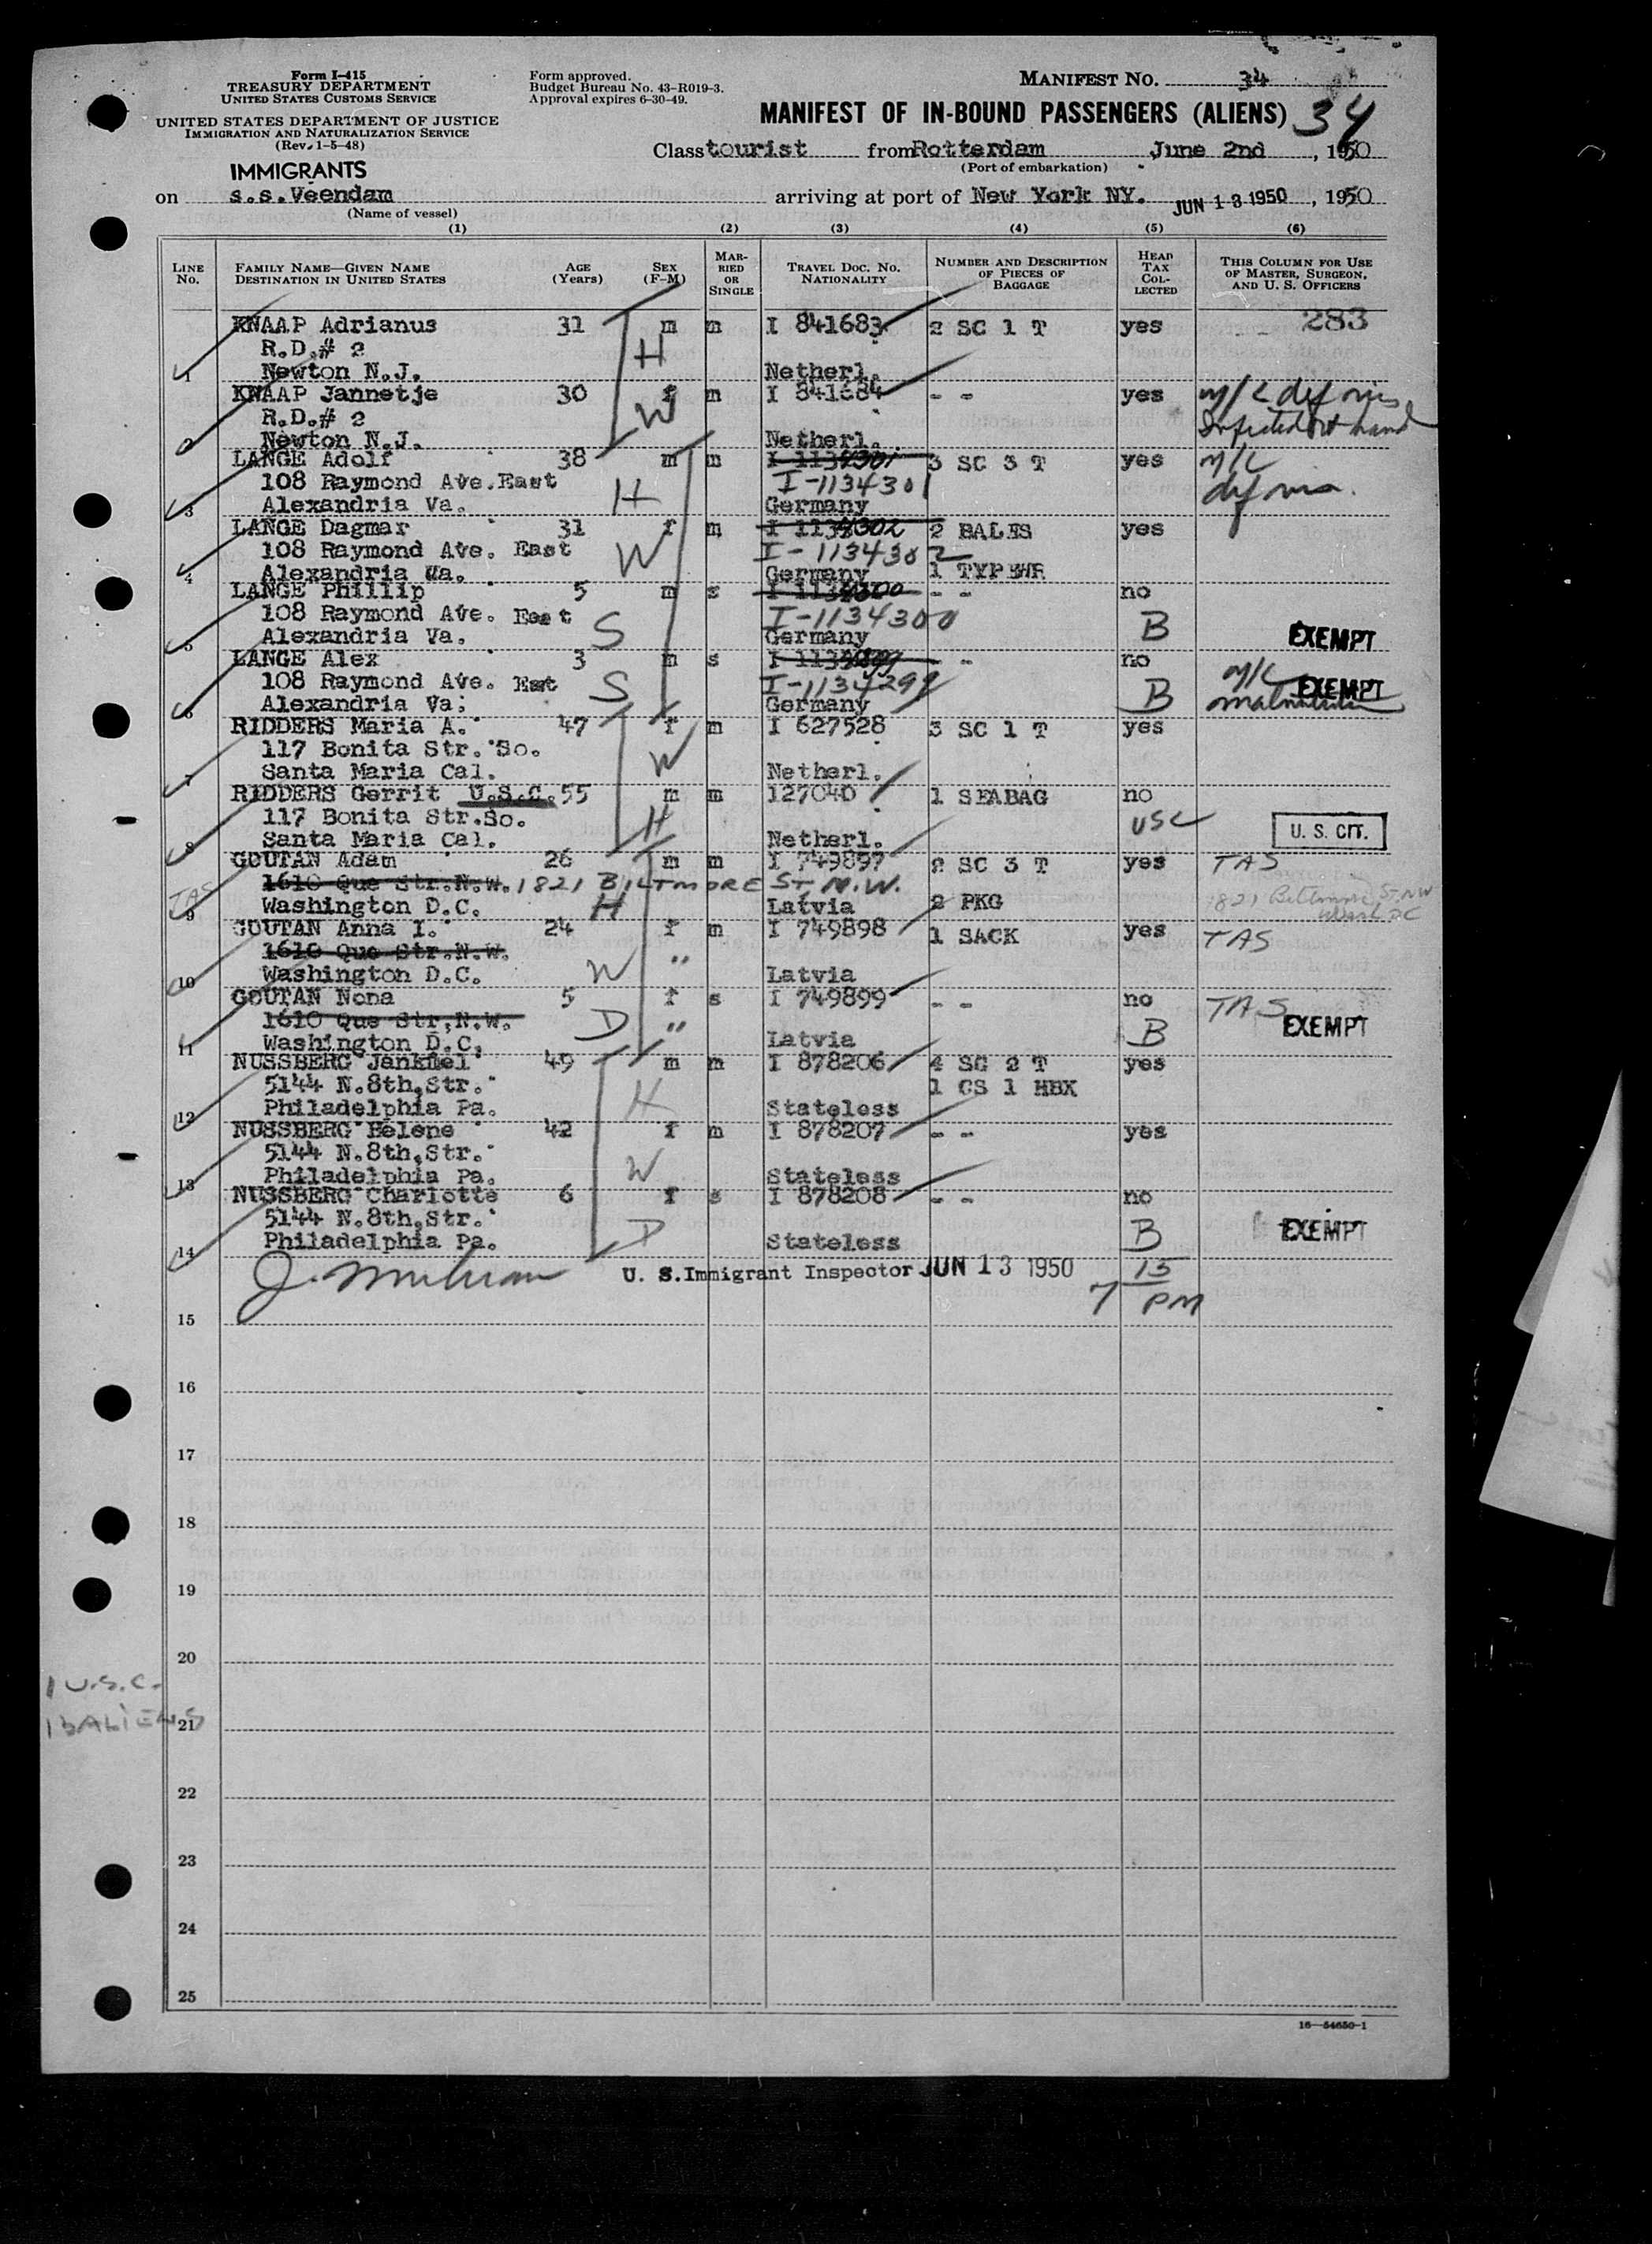 Form I-415
TREASURY DEPARTMENT
UNITED STATES CUSTOMS SERVICE
UNITED STATES DEPARTMENT OF JUSTICE
IMMIGRATION AND NATURALIZATION SERVICE
(Rev. 1-5-48)
Form approved.
Budget Bureau No. 43-R019-3.
Approval expires 6-30-49.
MANIFEST NO. 34
MANIFEST OF IN-BOUND PASSENGERS (ALIENS) 34
Class tourist from Rotterdam June 2nd, 1950
(Port of embarkation)
IMMIGRANTS
on s.s. Veendam arriving at port of New York NY. JUN 13 1950, 1950
(Name of vessel)
(1) (2) (3) (4) (5) (6)
LINE No. FAMILY NAME—GIVEN NAME DESTINATION IN UNITED STATES AGE (Years) SEX (F-M) MARRIED OR SINGLE TRAVEL DOC. NO. NATIONALITY NUMBER AND DESCRIPTION OF PIECES OF BAGGAGE HEAD TAX COLLECTED THIS COLUMN FOR USE OF MASTER, SURGEON, AND U. S. OFFICERS
KNAAP Adrianus 31 m m I 841683 2 SC 1 T yes 283
R.D.# 2 H
1 Newton N.J. Netherl.
KNAAP Jannetje 30 f m I 841684 - - yes m/c def vis
R.D.# 2 W Infected rt hand
2 Newton N.J. Netherl.
LANGE Adolf 38 m m I 1134301 3 SC 3 T yes m/c
108 Raymond Ave.East H I-1134301 def vis.
3 Alexandria Va. Germany
LANGE Dagmar 31 f m I 1134302 2 BALES yes
108 Raymond Ave. East W I-1134302
4 Alexandria Va. Germany 1 TYPEWR
LANGE Phillip 5 m s I 1134300 - - no
108 Raymond Ave. East S I-1134300 B EXEMPT
5 Alexandria Va. Germany
LANGE Alex 3 m s - - no m/c
108 Raymond Ave. Est S I-1134299 B EXEMPT malnutrition
6 Alexandria Va. Germany
RIDDERS Maria A. 47 f m I 627528 3 SC 1 T yes
117 Bonita Str. So. W
7 Santa Maria Cal. Netherl.
RIDDERS Gerrit U.S.C. 55 m m 127040 1 SEABAG no
117 Bonita Str.So. H USC U. S. CIT.
8 Santa Maria Cal. Netherl.
GOUTAN Adam 26 m m I 749897 2 SC 3 T yes TAS
TAS 1610 Que Str.N.W. 1821 BILTMORE ST, N.W. 1821 Biltmore St. NW
9 Washington D.C. H Latvia 2 PKG Wash DC
GOUTAN Anna I. 24 f m I 749898 1 SACK yes TAS
1610 Que Str.N.W. "
10 Washington D.C. W Latvia
GOUTAN Nona 5 f s I 749899 - - no TAS
1610 Que Str,N.W. D " B EXEMPT
11 Washington D.C. Latvia
NUSSBERG Jankuel 49 m m I 878206 4 SC 2 T yes
5144 N.8th,Str. H 1 CS 1 HBX
12 Philadelphia Pa. Stateless
NUSSBERG Helene 42 f m I 878207 - - yes
5144 N.8th,Str. W
13 Philadelphia Pa. Stateless
NUSSBERG Charlotte 6 f s I 878208 - - no
5144 N.8th,Str. D B EXEMPT
14 Philadelphia Pa. Stateless
U. S. Immigrant Inspector JUN 13 1950 13
7 PM
15
16
17
18
19
20
1 U.S.C.
13 ALIENS 21
22
23
24
25
16—54650-1